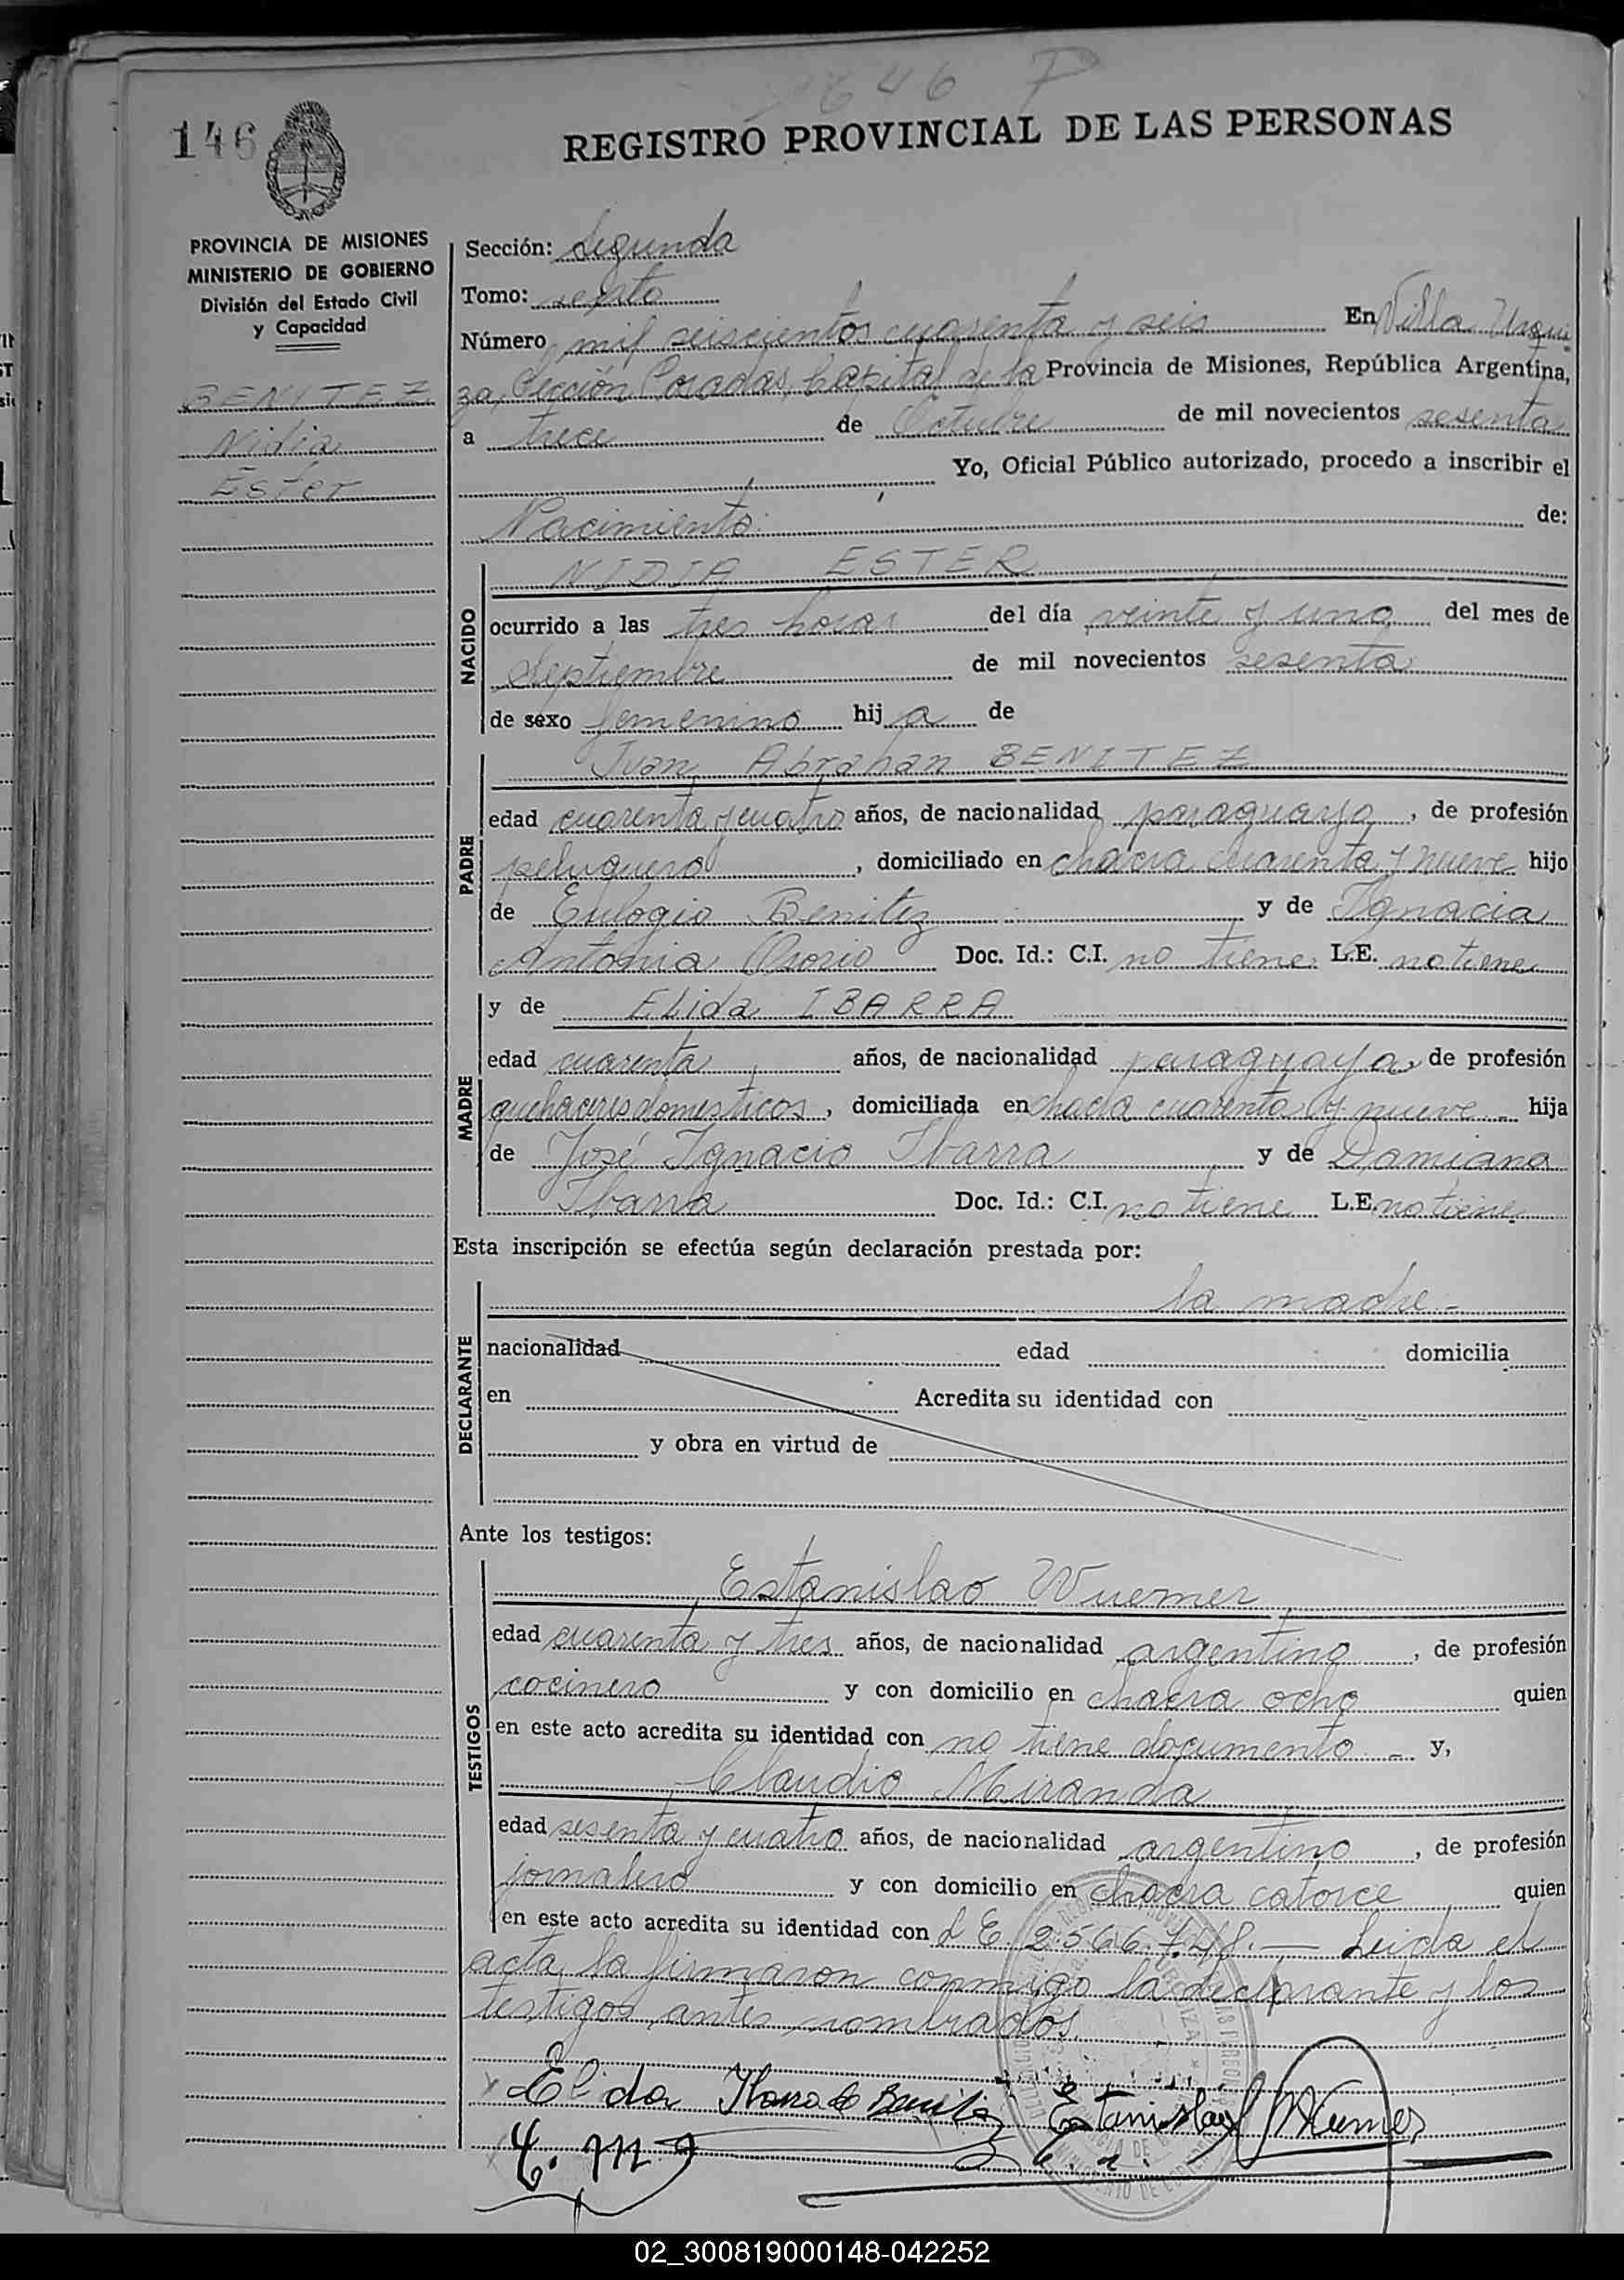 1646 P
146
REGISTRO PROVINCIAL DE LAS PERSONAS
PROVINCIA DE MISIONES
MINISTERIO DE GOBIERNO
División del Estado Civil
y Capacidad
BENITEZ
Nidia
Ester
Sección: Segunda
Tomo: sexto
Número mil seiscientos cuarenta y seis En Villa Urqui
za, Sección Posadas, Capital de la Provincia de Misiones, República Argentina,
a trece de Octubre de mil novecientos sesenta
Yo, Oficial Público autorizado, procedo a inscribir el
Nacimiento de:
NACIDO
NIDIA ESTER
ocurrido a las tres horas del día veinte y uno del mes de
Septiembre de mil novecientos sesenta
de sexo femenino hij a de
PADRE
Juan Abrahan BENITEZ
edad cuarenta y cuatro años, de nacionalidad paraguaya, de profesión
peluquero, domiciliado en chacra cuarenta y nueve hijo
de Eulogio Benitez y de Ignacia
Antonia Osorio Doc. Id.: C.I. no tiene L.E. no tiene
MADRE
y de Elida IBARRA
edad cuarenta años, de nacionalidad paraguaya, de profesión
quehaceres domesticos, domiciliada en chacra cuarenta y nueve - hija
de José Ignacio Ibarra y de Damiana
Ibarra Doc. Id.: C.I. no tiene L.E. no tiene
Esta inscripción se efectúa según declaración prestada por:
DECLARANTE
la madre.-
nacionalidad edad domicilia
en Acredita su identidad con
y obra en virtud de
Ante los testigos:
TESTIGOS
Estanislao Wuemer
edad cuarenta y tres años, de nacionalidad argentino, de profesión
cocinero y con domicilio en chacra ocho quien
en este acto acredita su identidad con no tiene documento - y,
Claudio Miranda
edad sesenta y cuatro años, de nacionalidad argentino, de profesión
jornalero y con domicilio en chacra catorce quien
en este acto acredita su identidad con L E. 2.566.748.— Leida el
acta, la firmaron conmigo la declarante y los
testigos antes nombrados.
Elida Ibarra de Benitez Estanislao Wuemer
02_300819000148-042252